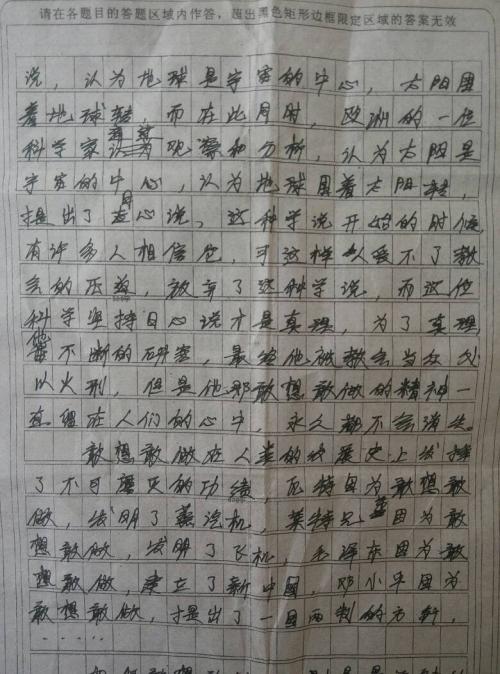 请在各题目的答题区域内作答，超出黑色矩形边框限定区域的答案无效
说，认为地球是宇宙的中心，太阳围
着地球转，而在此月时，欧洲的一位
科学家观察和分析，认为太阳是
宇宙的中心，认为地球围着太阳转，
提出了日心说。这种学说开始的时候，
有许多人相信他，可这样人受不了教
会的压迫，放弃了这种学说，而这位
科学坚持日心说才是真理，为了真理，
他不断的研究，最终他被教会当众处
以火刑，但是他那敢想敢做的精神一
直留在人们的心中，永久都不会消失。
敢想敢做在人类的发展史上发挥
了不可磨灭的功绩，瓦特因为敢想敢
做，发明了蒸汽机，莱特兄弟因为敢
想敢做，发明了飞机，毛泽东因为敢
想敢做，建立了新中国，邓小平因为
敢想敢做，提出了一国两制的方针，
......